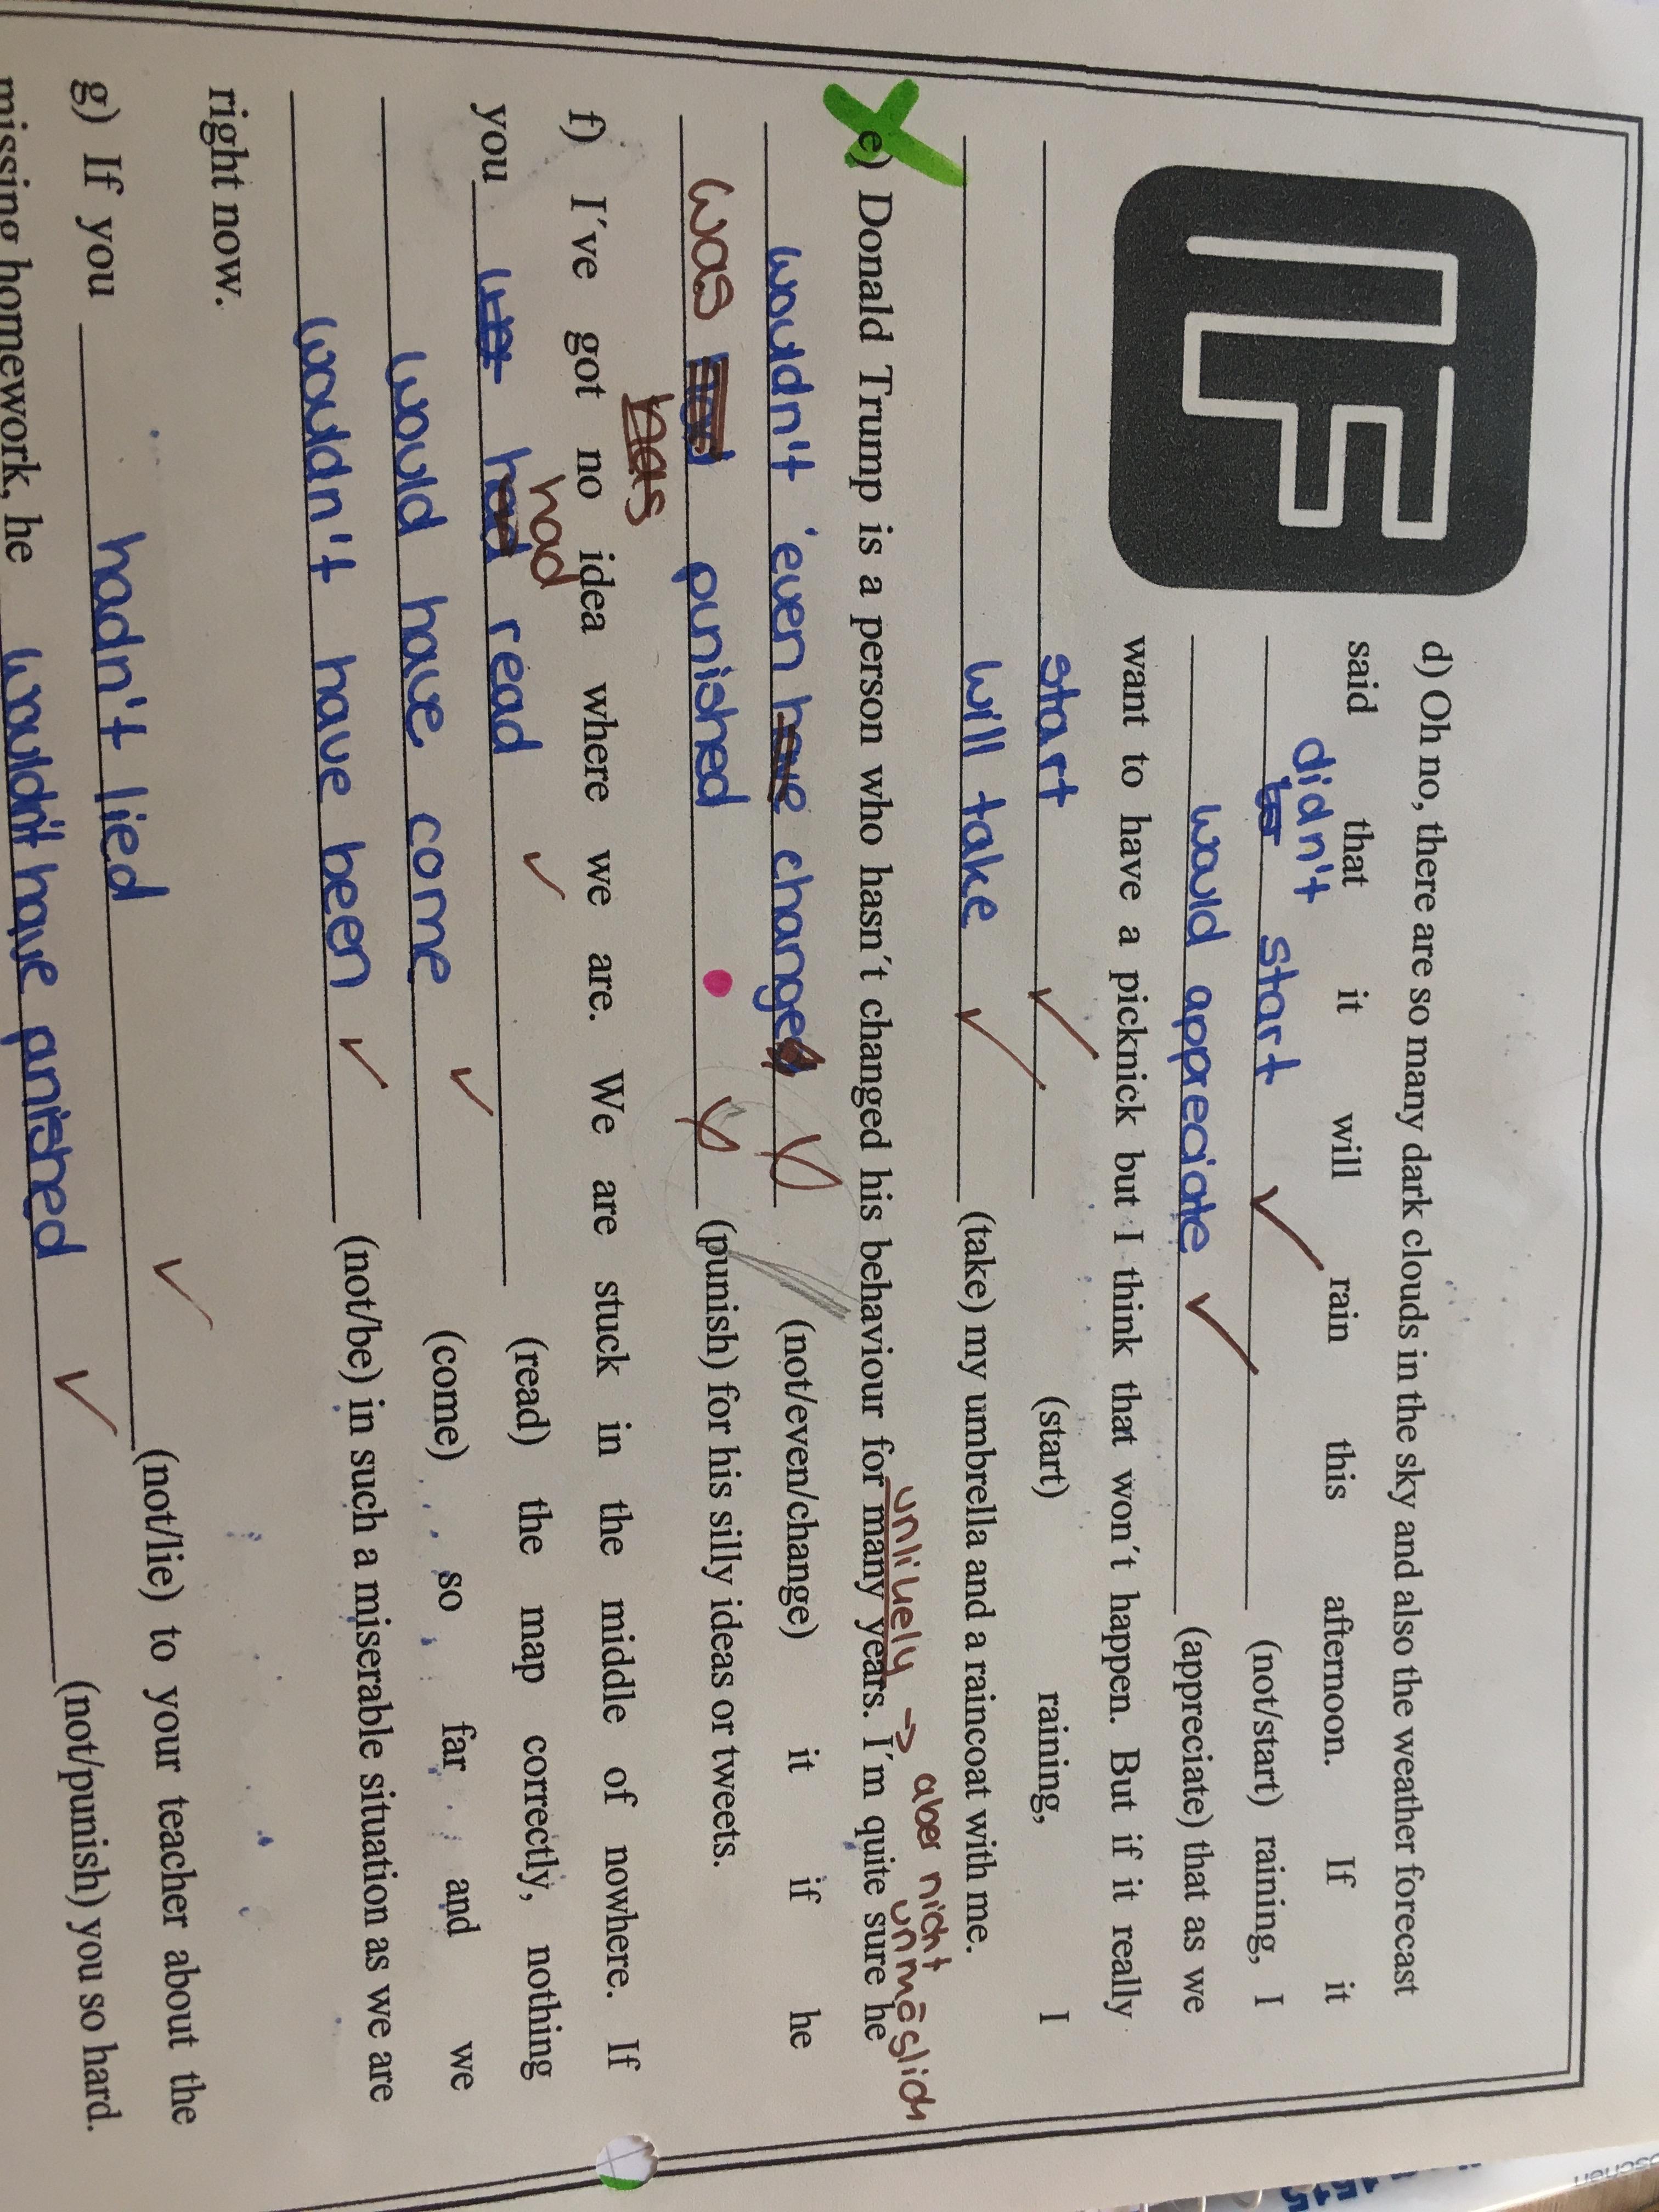 IF
d) Oh no, there are so many dark clouds in the sky and also the weather forecast
said that it will rain this afternoon. If it
didn't start (not/start) raining, I
would appreciate (appreciate) that as we
want to have a picknick but I think that won´t happen. But if it really
start (start) raining, I
will take (take) my umbrella and a raincoat with me.
unlikely -> aber nicht unmöglich
e) Donald Trump is a person who hasn´t changed his behaviour for many years. I´m quite sure he
wouldn't even have change (not/even/change) it if he
was had punished (punish) for his silly ideas or tweets.
has
f) I´ve got no idea where we are. We are stuck in the middle of nowhere. If
had
you had read (read) the map correctly, nothing
would have come (come) so far and we
wouldn't have been (not/be) in such a miserable situation as we are
right now.
g) If you hadn't lied (not/lie) to your teacher about the
missing homework, he wouldn't have punished (not/punish) you so hard.
1515